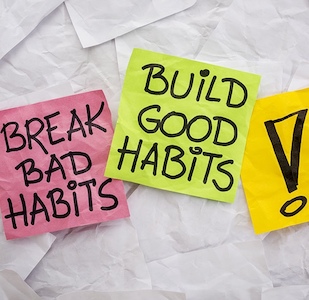 BREAK
BAD
HABITS
BUILD
GOOD
HABITS
!